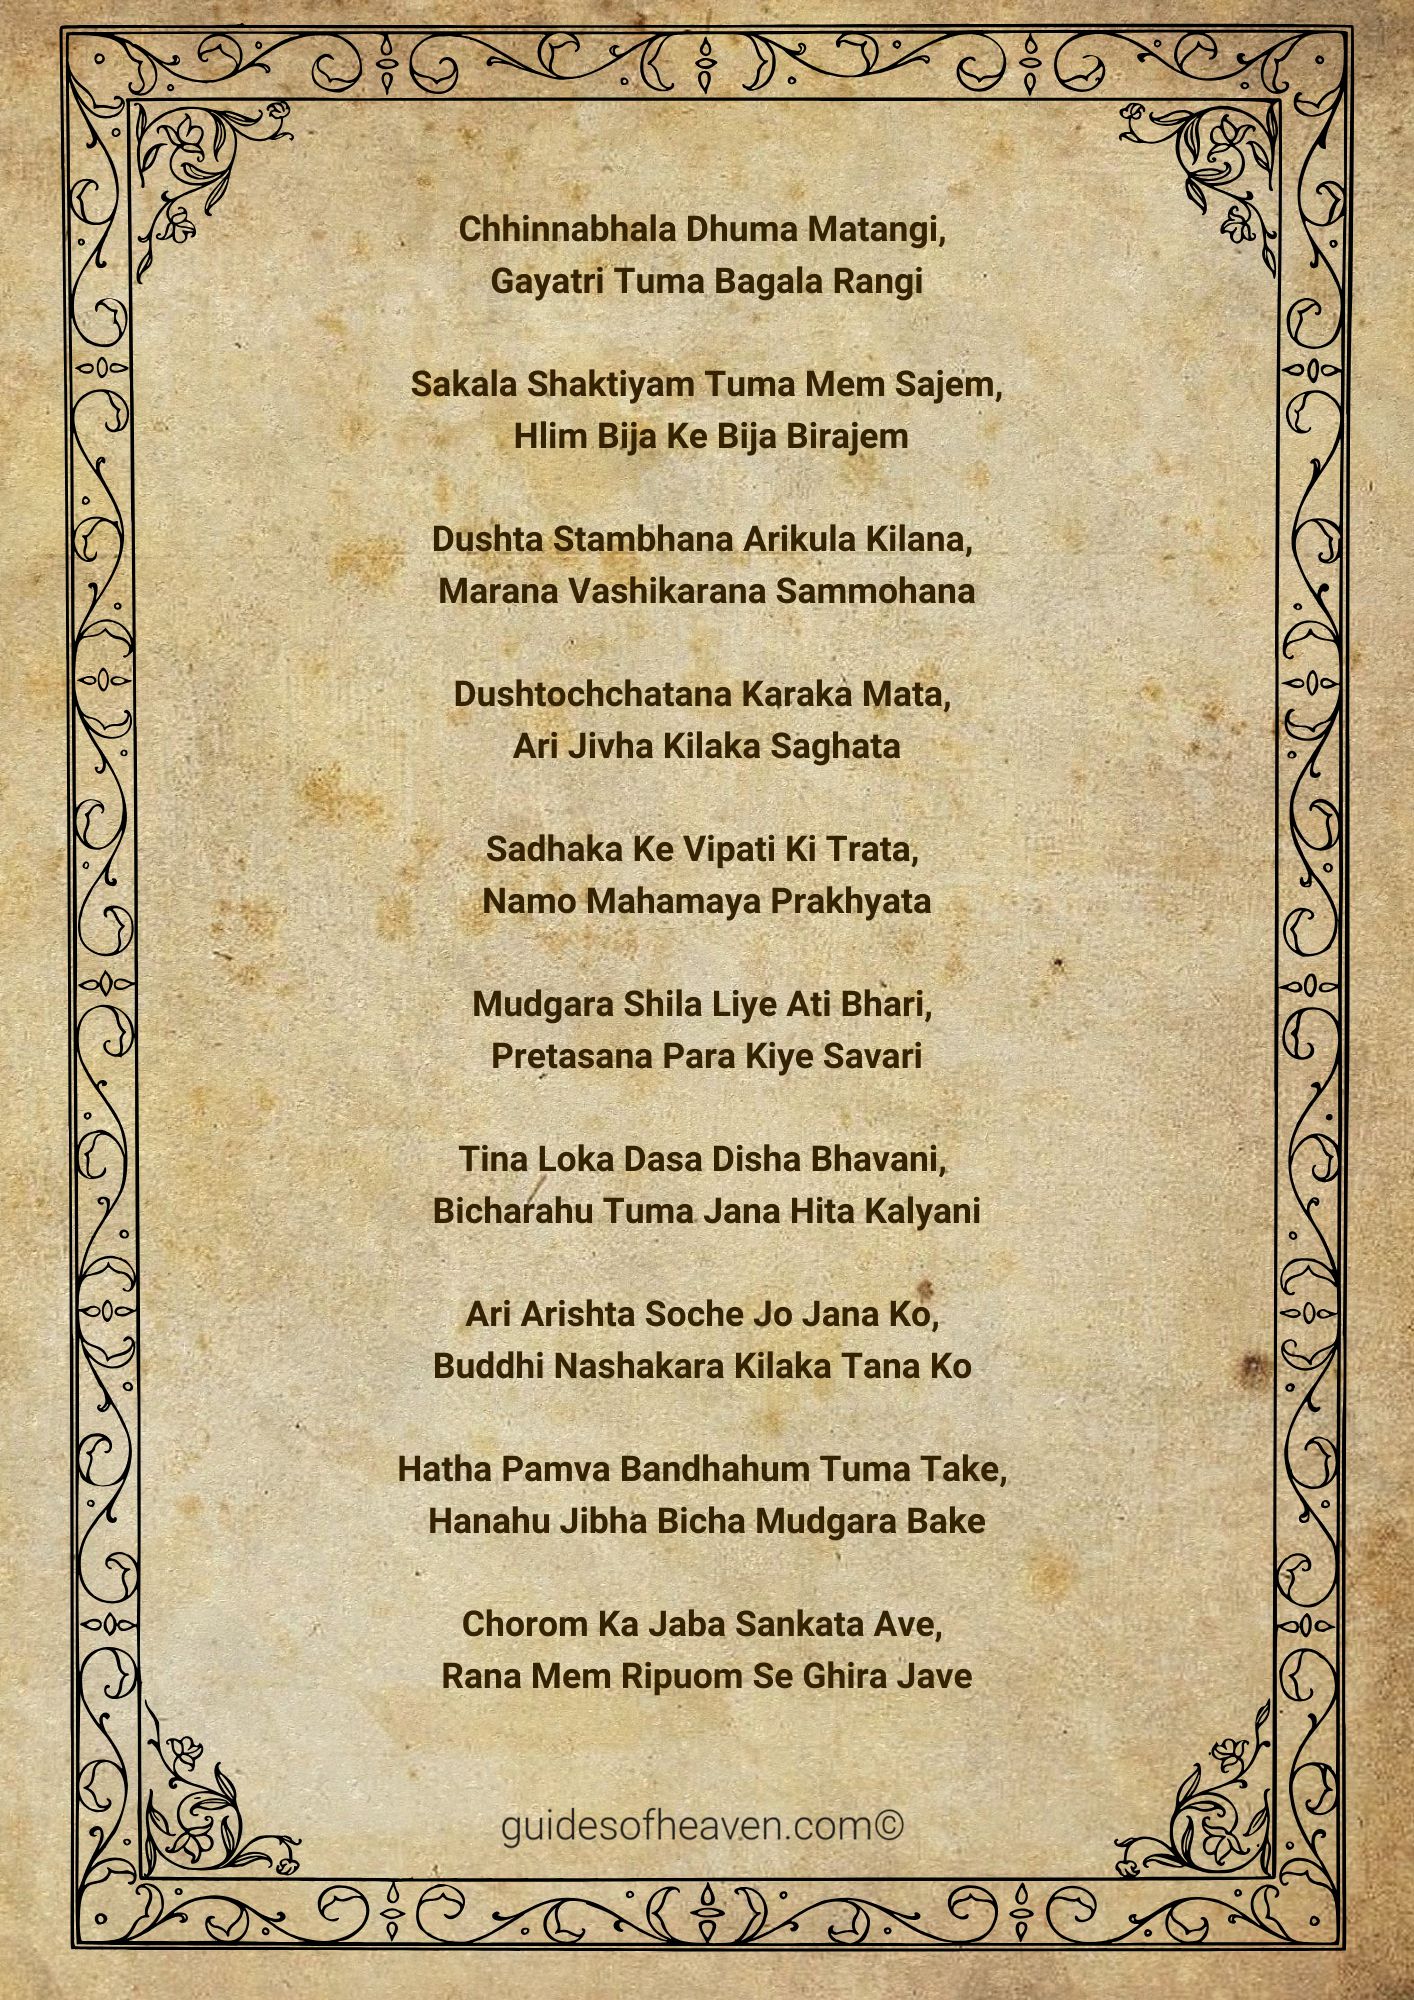 Chhinnabhala Dhuma Matangi,
Gayatri Tuma Bagala Rangi
Sakala Shaktiyam Tuma Mem Sajem,
Hlim Bija Ke Bija Birajem
Dushta Stambhana Arikula Kilana,
Marana Vashikarana Sammohana
Dushtochchatana Karaka Mata,
Ari Jivha Kilaka Saghata
Sadhaka Ke Vipati Ki Trata,
Namo Mahamaya Prakhyata
Mudgara Shila Liye Ati Bhari,
Pretasana Para Kiye Savari
Tina Loka Dasa Disha Bhavani,
Bicharahu Tuma Jana Hita Kalyani
Ari Arishta Soche Jo Jana Ko,
Buddhi Nashakara Kilaka Tana Ko
Hatha Pamva Bandhahum Tuma Take,
Hanahu Jibha Bicha Mudgara Bake
Chorom Ka Jaba Sankata Ave,
Rana Mem Ripuom Se Ghira Jave
guidesofheaven.com©